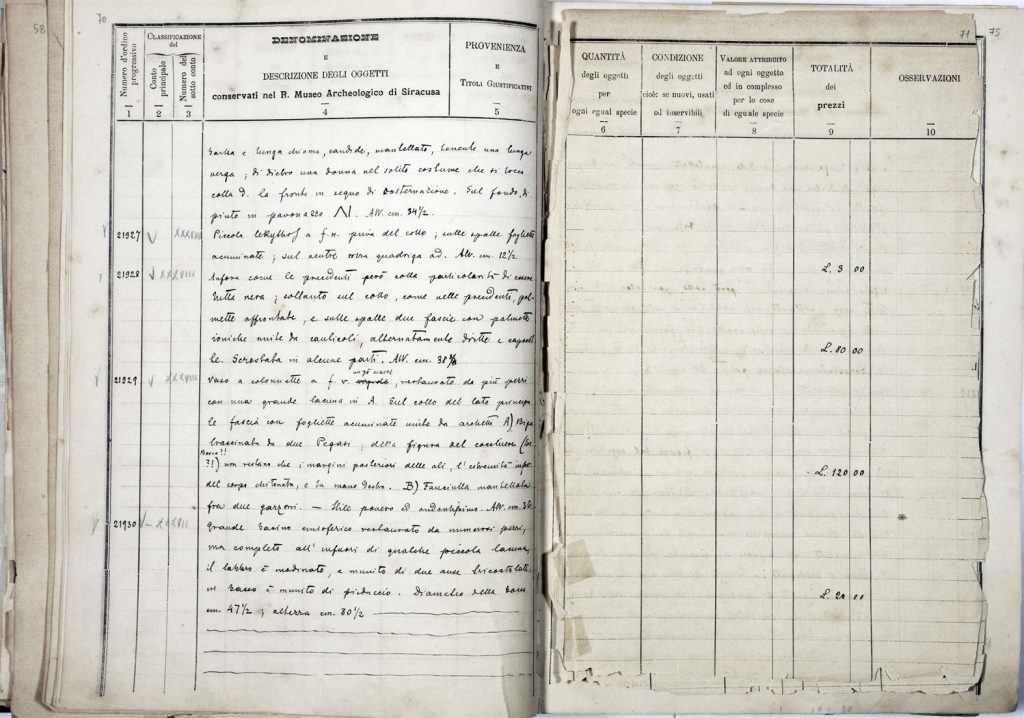 58
70
Numero d'ordine progressivo
CLASSIFICAZIONE
del
Conto principale
Numero del sotto conto
DENOMINAZIONE
E
DESCRIZIONE DEGLI OGGETTI
conservati nel R. Museo Archeologico di Siracusa
PROVENIENZA
E
TITOLI GIUSTIFICATIVI
1 2 3 4 5
barba e lunga chioma, candide, mantellato, tenente una lunga
verga; di dietro una donna nel solito costume che si tocca
colla d. la fronte in segno di costernazione. Sul fondo, di
pinto in pavonazzo. Alt. cm. 34 1/2.
21927 V XXXVIII Piccola lekythos a f. n. priva del collo; sulle spalle fogliette
acuminate; sul ventre quadriga ad. Alt. cm. 12 1/2
21928 V XXXVIII Anfora come le precedenti però colla particolarità di essere
tutta nera; soltanto sul collo, come nelle precedenti, pal
mette affrontate, e sulle spalle due fascie con palmette
ioniche unite da cauticoli, alternatamente diritte e capovol
te. Scrostata in alcune parti. Alt. cm. 38
21929 V XXXVIII Vaso a colonnette a f. r. restaurato da più pezzi
con una grande lacuna in A. Sul collo del lato principa
le fascia con fogliette acuminate unite da archetti A) Biga
trascinata da due Pegasi; della figura del cocchiere
?!) non restano che i margini posteriori delle ali, l'estremità infer.
del corpo chitonato, e la mano destra. B) Fanciulla mantellata
fra due garzoni. — Stile povero ed andantissimo. Alt. cm. 36
21930 V – XXXVII Grande bacino emisferico restaurato da numerosi pezzi,
ma completo all'infuori di qualche piccola lacuna,
il labbro è modinato, e munito di due anse tricostolate.
in basso è munito di pieduccio. Diametro della bocca
cm. 47 1/2; altezza cm. 30 1/2
71
75
QUANTITÀ
degli oggetti
per
ogni egual specie
CONDIZIONE
degli oggetti
cioè: se nuovi, usati
od inservibili
VALORE ATTRIBUITO
ad ogni oggetto
ed in complesso
per le cose
di eguale specie
TOTALITÀ
dei
prezzi
OSSERVAZIONI
6 7 8 9 10
L. 3 00
L. 80 00
L. 120 00
L. 21 00